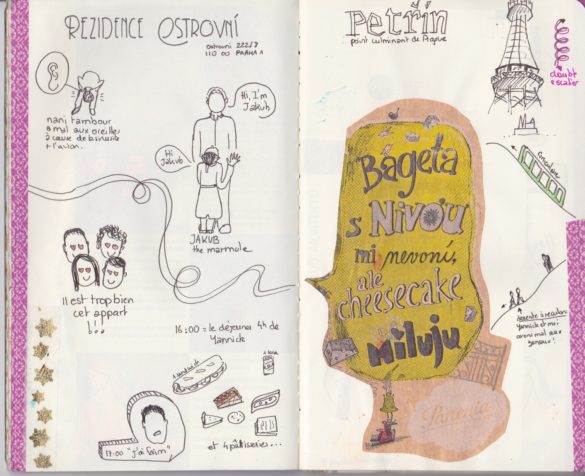 REZIDENCE OSTROVNÍ
ostrovni 222/7
110 00 PRAHA 1
Hi, I'm
Jakub
nani tambour
a mal aux oreilles
à cause de
+ l'avion.
Hi
Jakub
JAKUB
the marmule
Il est trop bien
cet appart
!!!
16:00 = le déjeuner 4h de
Yannick
1 sandwich
17:00 "j'ai faim"
et 4 pâtisseries...
Petřín
point culminant de Prague
double
escalier
Bageta
s Nivou
mi nevoní,
ale
cheesecake
Miluju
Descente à reculons
Yannick et moi
avons mal aux
genoux!